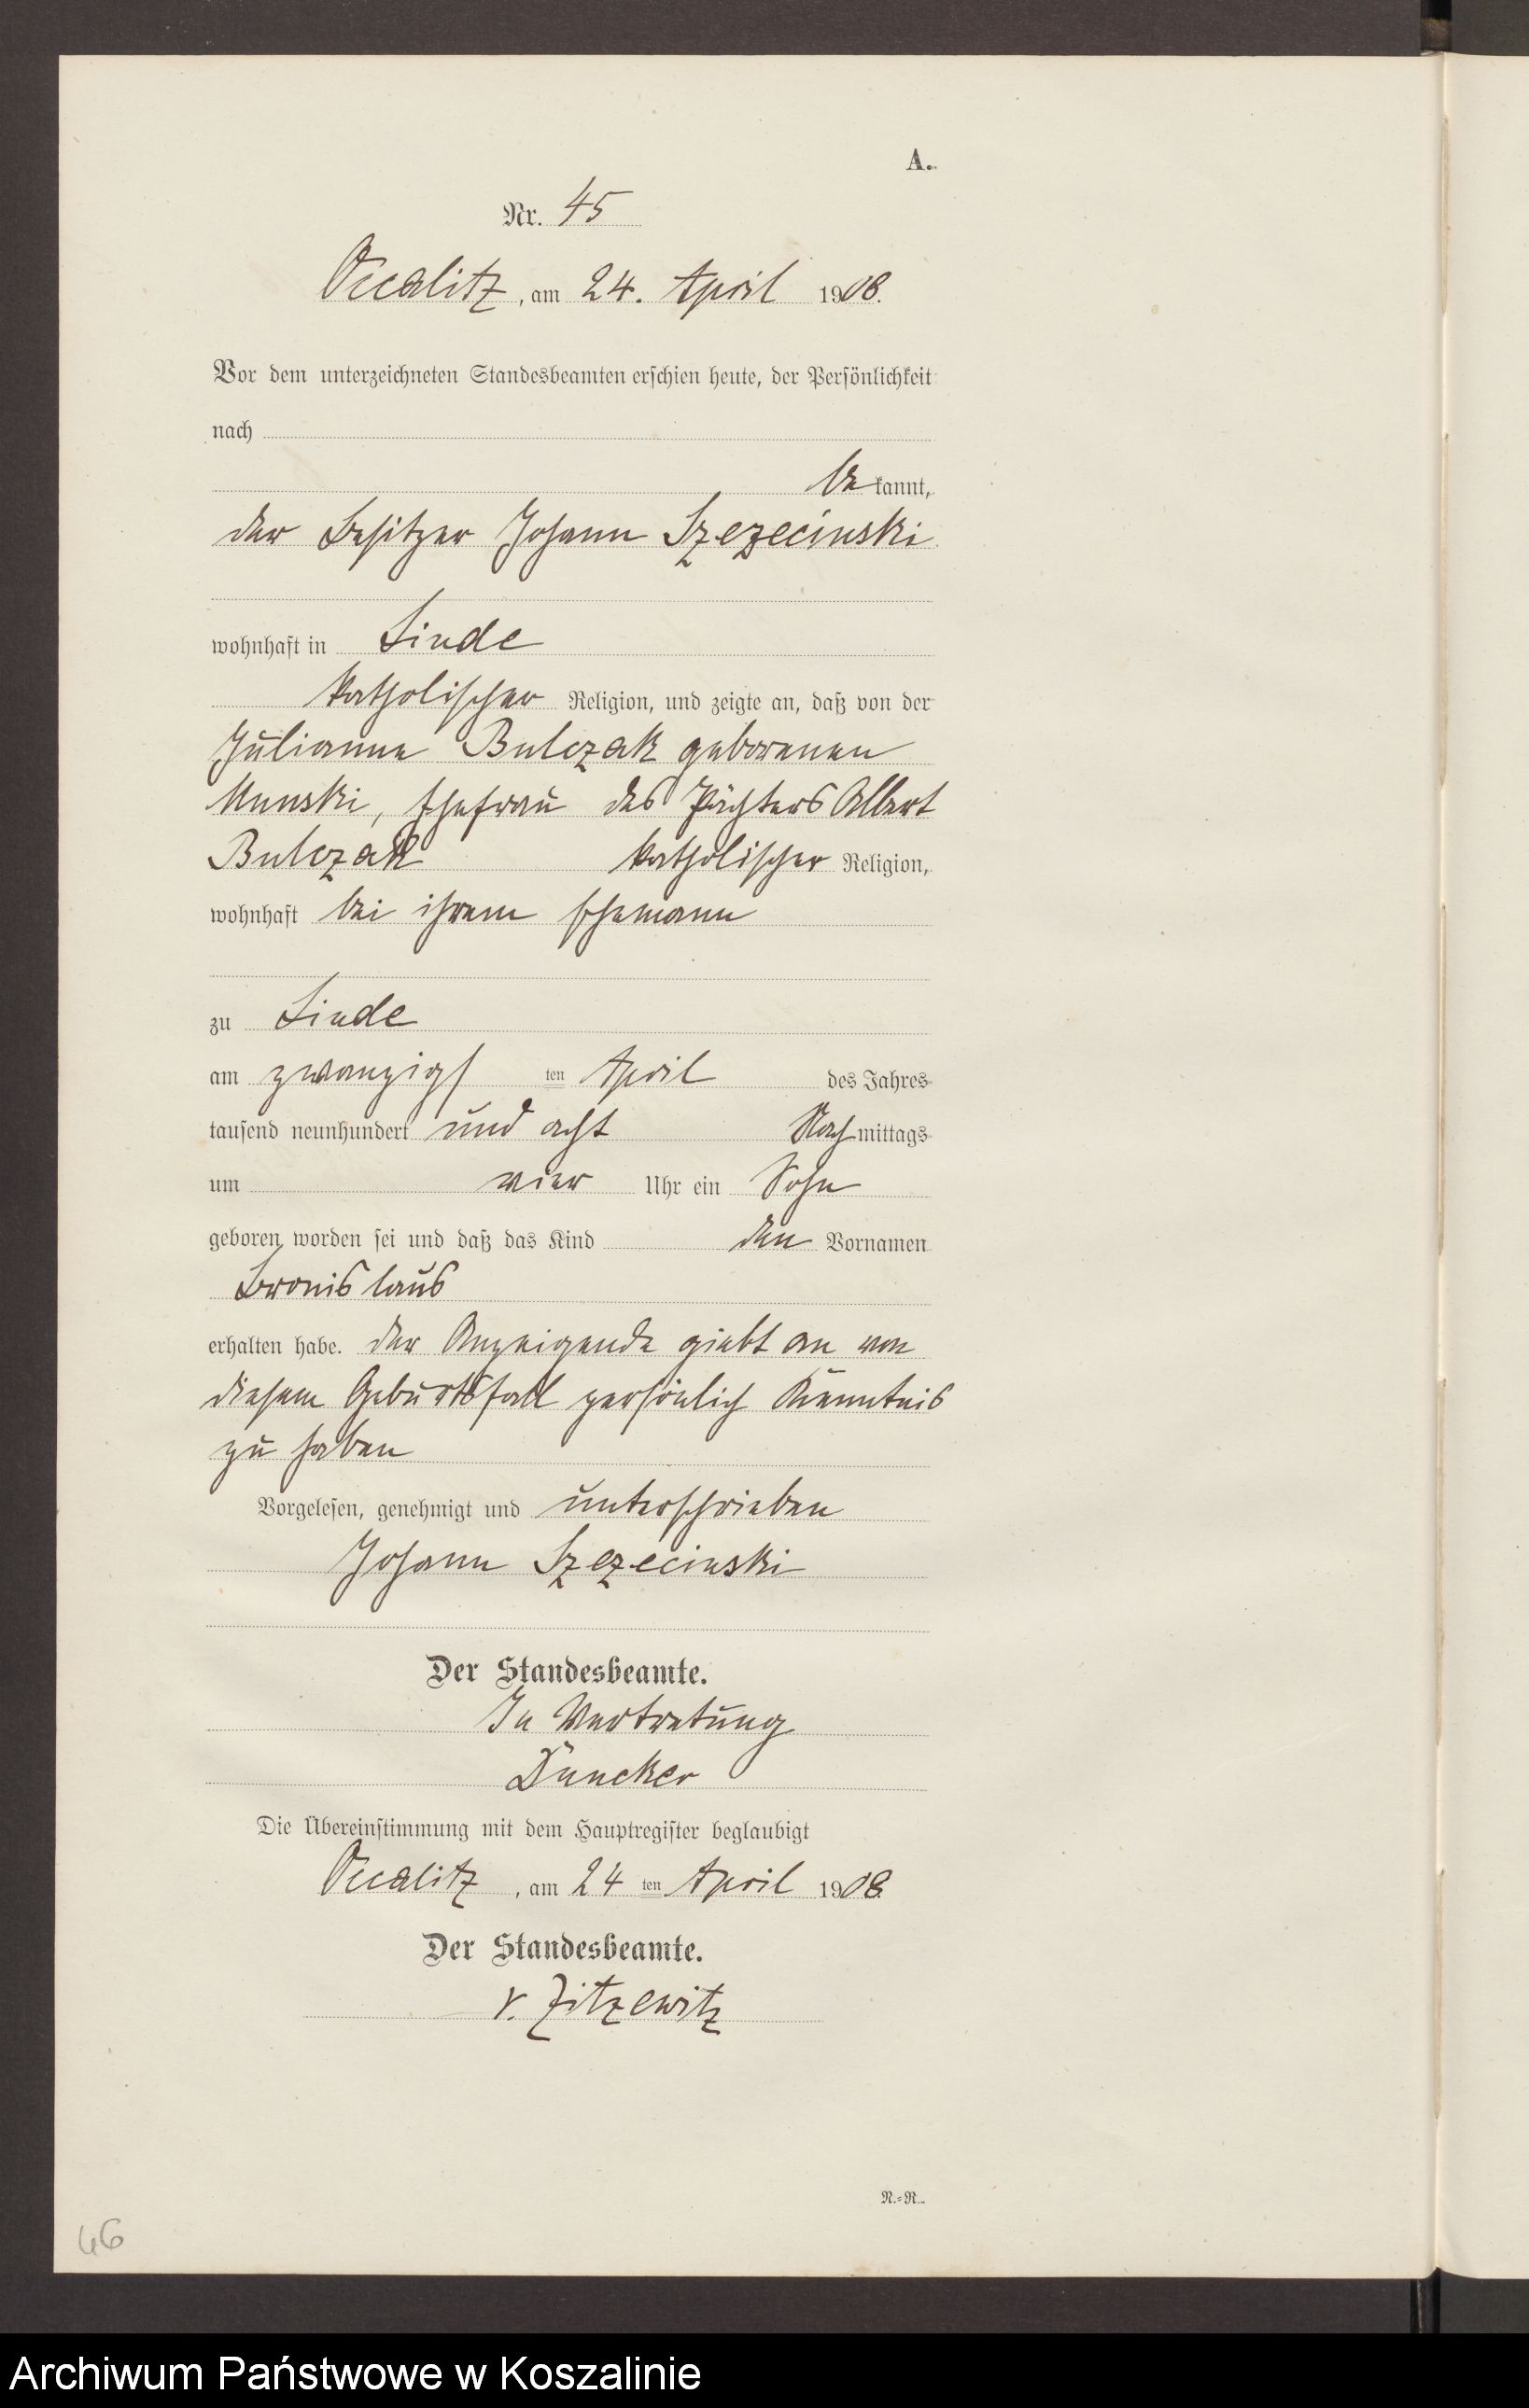 A.
Nr. 45
Occalitz, am 24. April 1908.
Vor dem unterzeichneten Standesbeamten erschien heute, der Persönlichkeit
nach
be kannt,
der Besitzer Johann Szczecinski
wohnhaft in Linde
katholischer Religion, und zeigte an, daß von der
Julianna Bulczak geborenen
Munski, Ehefrau des Pächters Albert
Bulczak katholischer Religion,
wohnhaft bei ihrem Ehemann
zu Linde
am zwanzigs ten April des Jahres
tausend neunhundert und acht Nach mittags
um vier Uhr ein Sohn
geboren worden sei und daß das Kind den Vornamen
Bronislaus
erhalten habe. Der Anzeigende giebt an von
diesem Geburtsfall persönlich Kenntnis
zu haben
Vorgelesen, genehmigt und unterschrieben
Johann Szczecinski
Der Standesbeamte.
In Vertretung
Duncker
Die Übereinstimmung mit dem Hauptregister beglaubigt
Occalitz, am 24 ten April 1908
Der Standesbeamte.
v. Zitzewitz
N.=R.
46
Archiwum Państwowe w Koszalinie